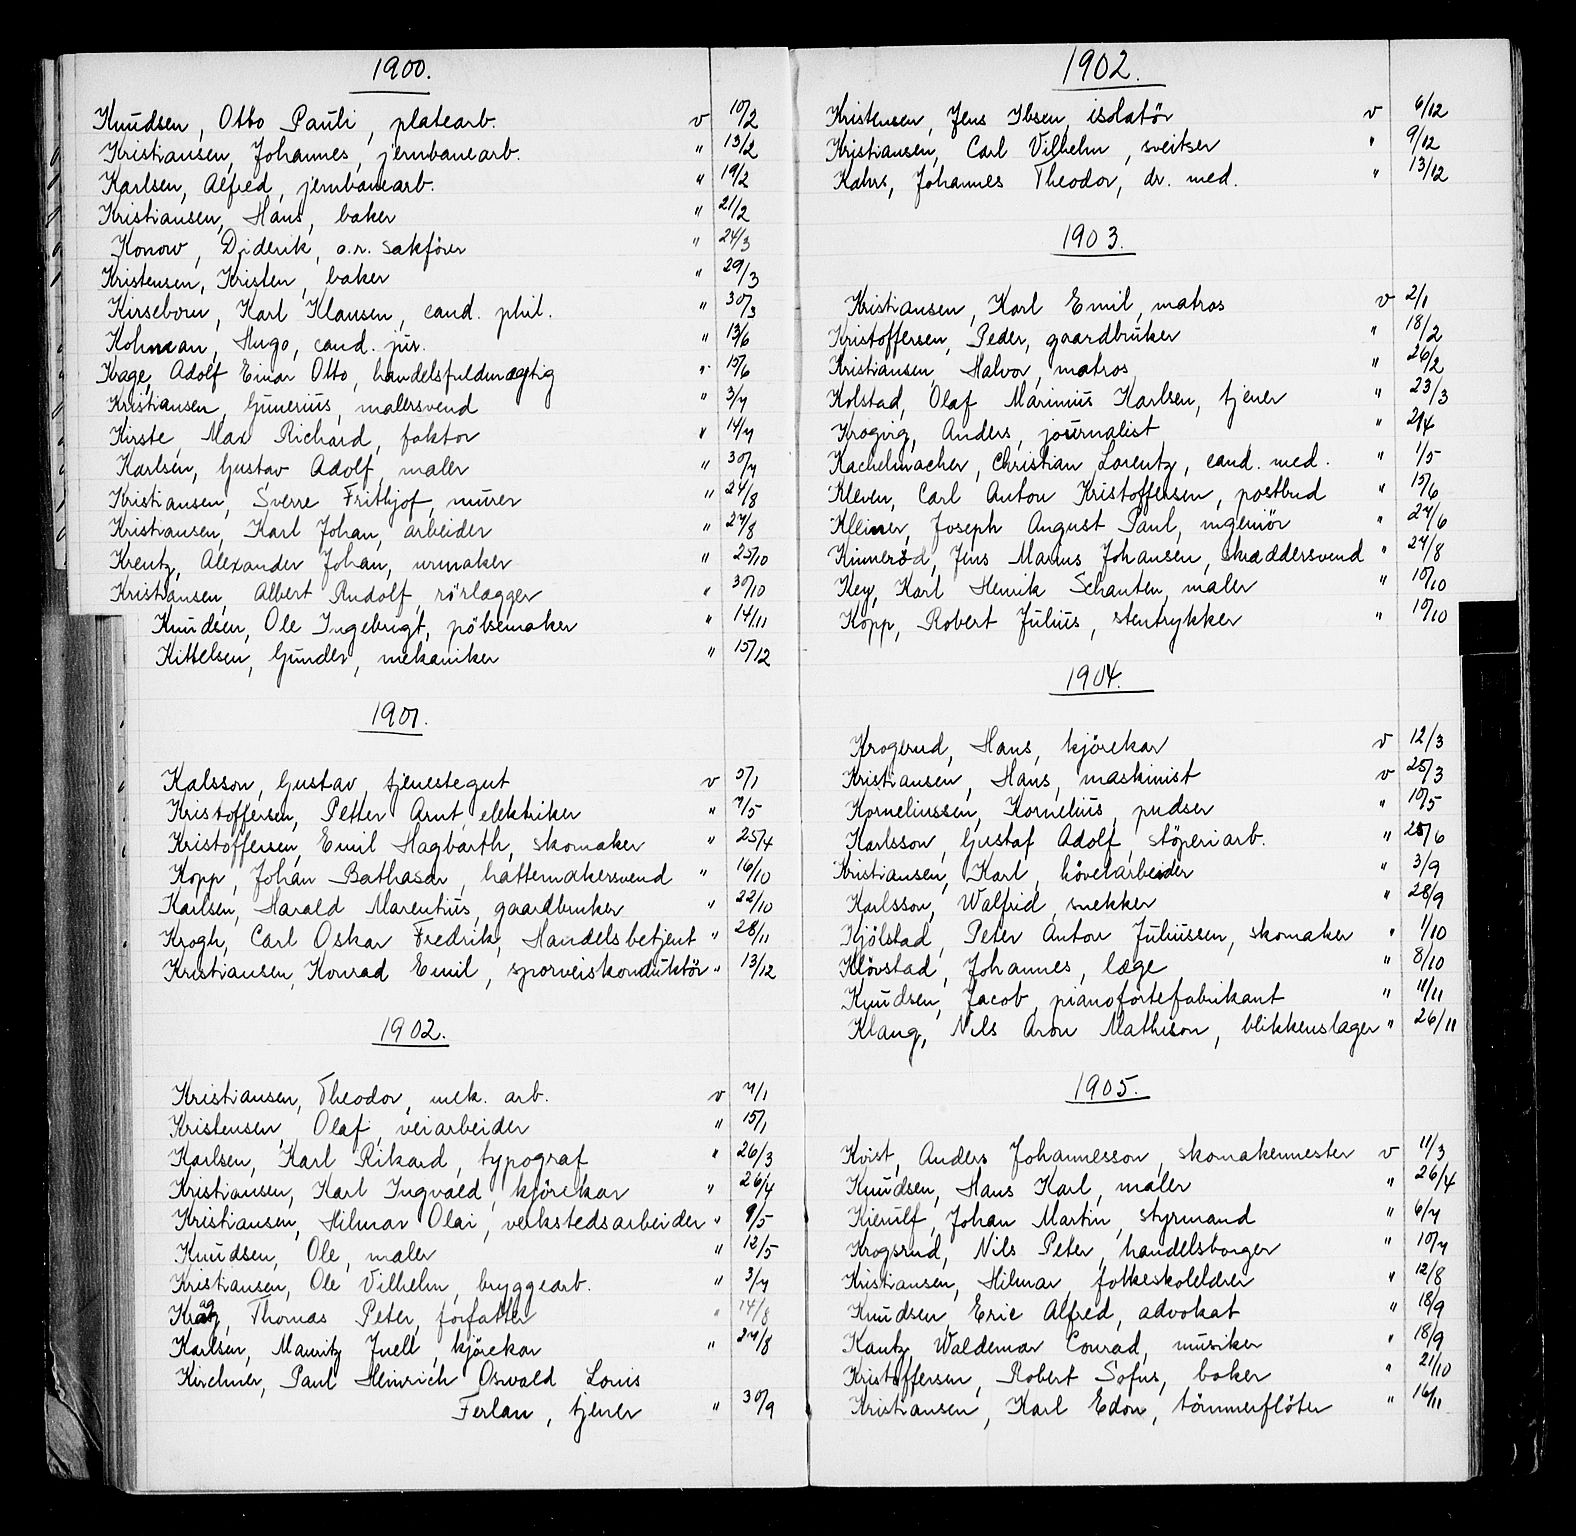 1900.
Knudsen, Otto Pauli, platearb. v 10/2
Kristiansen, Johannes, jernbanearb. " 13/2
Karlsen, Alfred, jernbanearb. " 19/2
Kristiansen, Hans, baker " 21/2
Konow, Diderik, o.r. sakfører " 24/3
Kristensen, Kristen, baker " 29/3
Kirseborn, Karl Klausen, cand. phil. " 30/3
Kohman, Hugo, cand. jur. " 13/6
Krage, Adolf Einar Otto, handelsfuldmægtig " 15/6
Kristiansen, Gunerius, malersvend " 3/7
Kirste, Max Richard, faktor " 14/7
Karlsen, Gustav Adolf, maler " 30/7
Kristiansen, Sverre Frithjof, murer " 24/8
Kristiansen, Karl Johan, arbeider " 27/8
Krentz, Alexander Johan, urmaker " 25/10
Kristiansen, Albert Rudolf, rörlægger " 30/10
Knudsen, Ole Ingebrigt, pölsemaker " 14/11
Kittelsen, Gunder, mekaniker " 15/12
1901.
Kalsson, Gustav, tjenestegut v 5/1
Kristoffersen, Petter Arnt, elektriker " 7/5
Kristoffersen, Emil Hagbarth, skomaker " 25/4
Kopp, Johan Bathasar, hattemakersvend " 16/10
Karlsen, Harald Marentius, gaardbruker " 22/10
Krogh, Carl Oskar Fredrik, Handelsbetjent " 28/11
Kristiansen, Konrad Emil, sporveiskonduktör " 13/12
1902.
Kristiansen, Theodor, mek. arb. v 7/1
Kristensen, Olaf, veiarbeider " 15/1
Karlsen, Karl Rikard, typograf " 26/3
Kristiansen, Karl Ingvald, kjörekar " 26/4
Kristiansen, Hilmar Olai, verkstedsarbeider " 9/5
Knudsen, Ole, maler " 12/5
Kristiansen, Ole Vilhelm, bryggearb. " 3/7
Krag, Thomas Peter, forfatter " 14/8
Karlsen, Mauritz Juell, kjörekar " 27/8
Kirchner, Paul Heinrich Oswald Louis
Ferlan, tjener " 30/9
1902.
Kristensen, Jens Ibsen, isolatör v 6/12
Kristiansen, Carl Vilhelm, sveitser " 9/12
Kahrs, Johannes Theodor, dr. med. " 13/12
1903.
Kristiansen, Karl Emil, matros v 2/1
Kristoffersen, Peder, gaardbruker " 18/2
Kristiansen, Halvor, matros " 26/2
Kolstad, Olaf Marinius Karlsen, tjener " 23/3
Krogvig, Anders, journalist " 2/4
Kachelmacher, Christian Lorentz, cand. med. " 1/5
Kleven, Carl Anton Kristoffersen, postbud " 15/6
Kleiner, Joseph August Paul, ingeniör " 27/6
Kinneröd, Jens Marius Johansen, skæddersvend " 27/8
Key, Karl Henrik Schanten, maler " 10/10
Kopp, Robert Julius, stentrykker " 10/10
1904.
Krogsrud, Hans, kjörekar v 12/3
Kristiansen, Hans, maskinist v 25/3
Korneliussen, Kornelius, pudser " 10/5
Karlsson, Gustaf Adolf, stöperiarb. " 25/6
Kristiansen, Karl, hövelarbeider " 3/9
Karlsson, Walfrid, snekker " 28/9
Kjölstad, Peter Anton Juliussen, skomaker " 1/10
Klövstad, Johannes, læge " 8/10
Knudsen, Jacob, pianofortefabrikant " 11/11
Klang, Nils Aron Mathison, blikkenslager " 26/11
1905.
Kvist, Anders Johannesson, skomakermester v 11/3
Knudsen, Hans Karl, maler " 26/4
Kierulf, Johan Martin, styrmand " 6/7
Krogsrud, Nils Peter, handelsborger " 10/7
Kristiansen, Hilmar, folkeskolelærer " 12/8
Knudsen, Eric Alfred, advokat " 18/9
Kautz, Waldemar Conrad, musiker " 18/9
Kristoffersen, Robert Sofus, baker " 21/10
Kristiansen, Karl Edon, tömmerflöter " 16/11